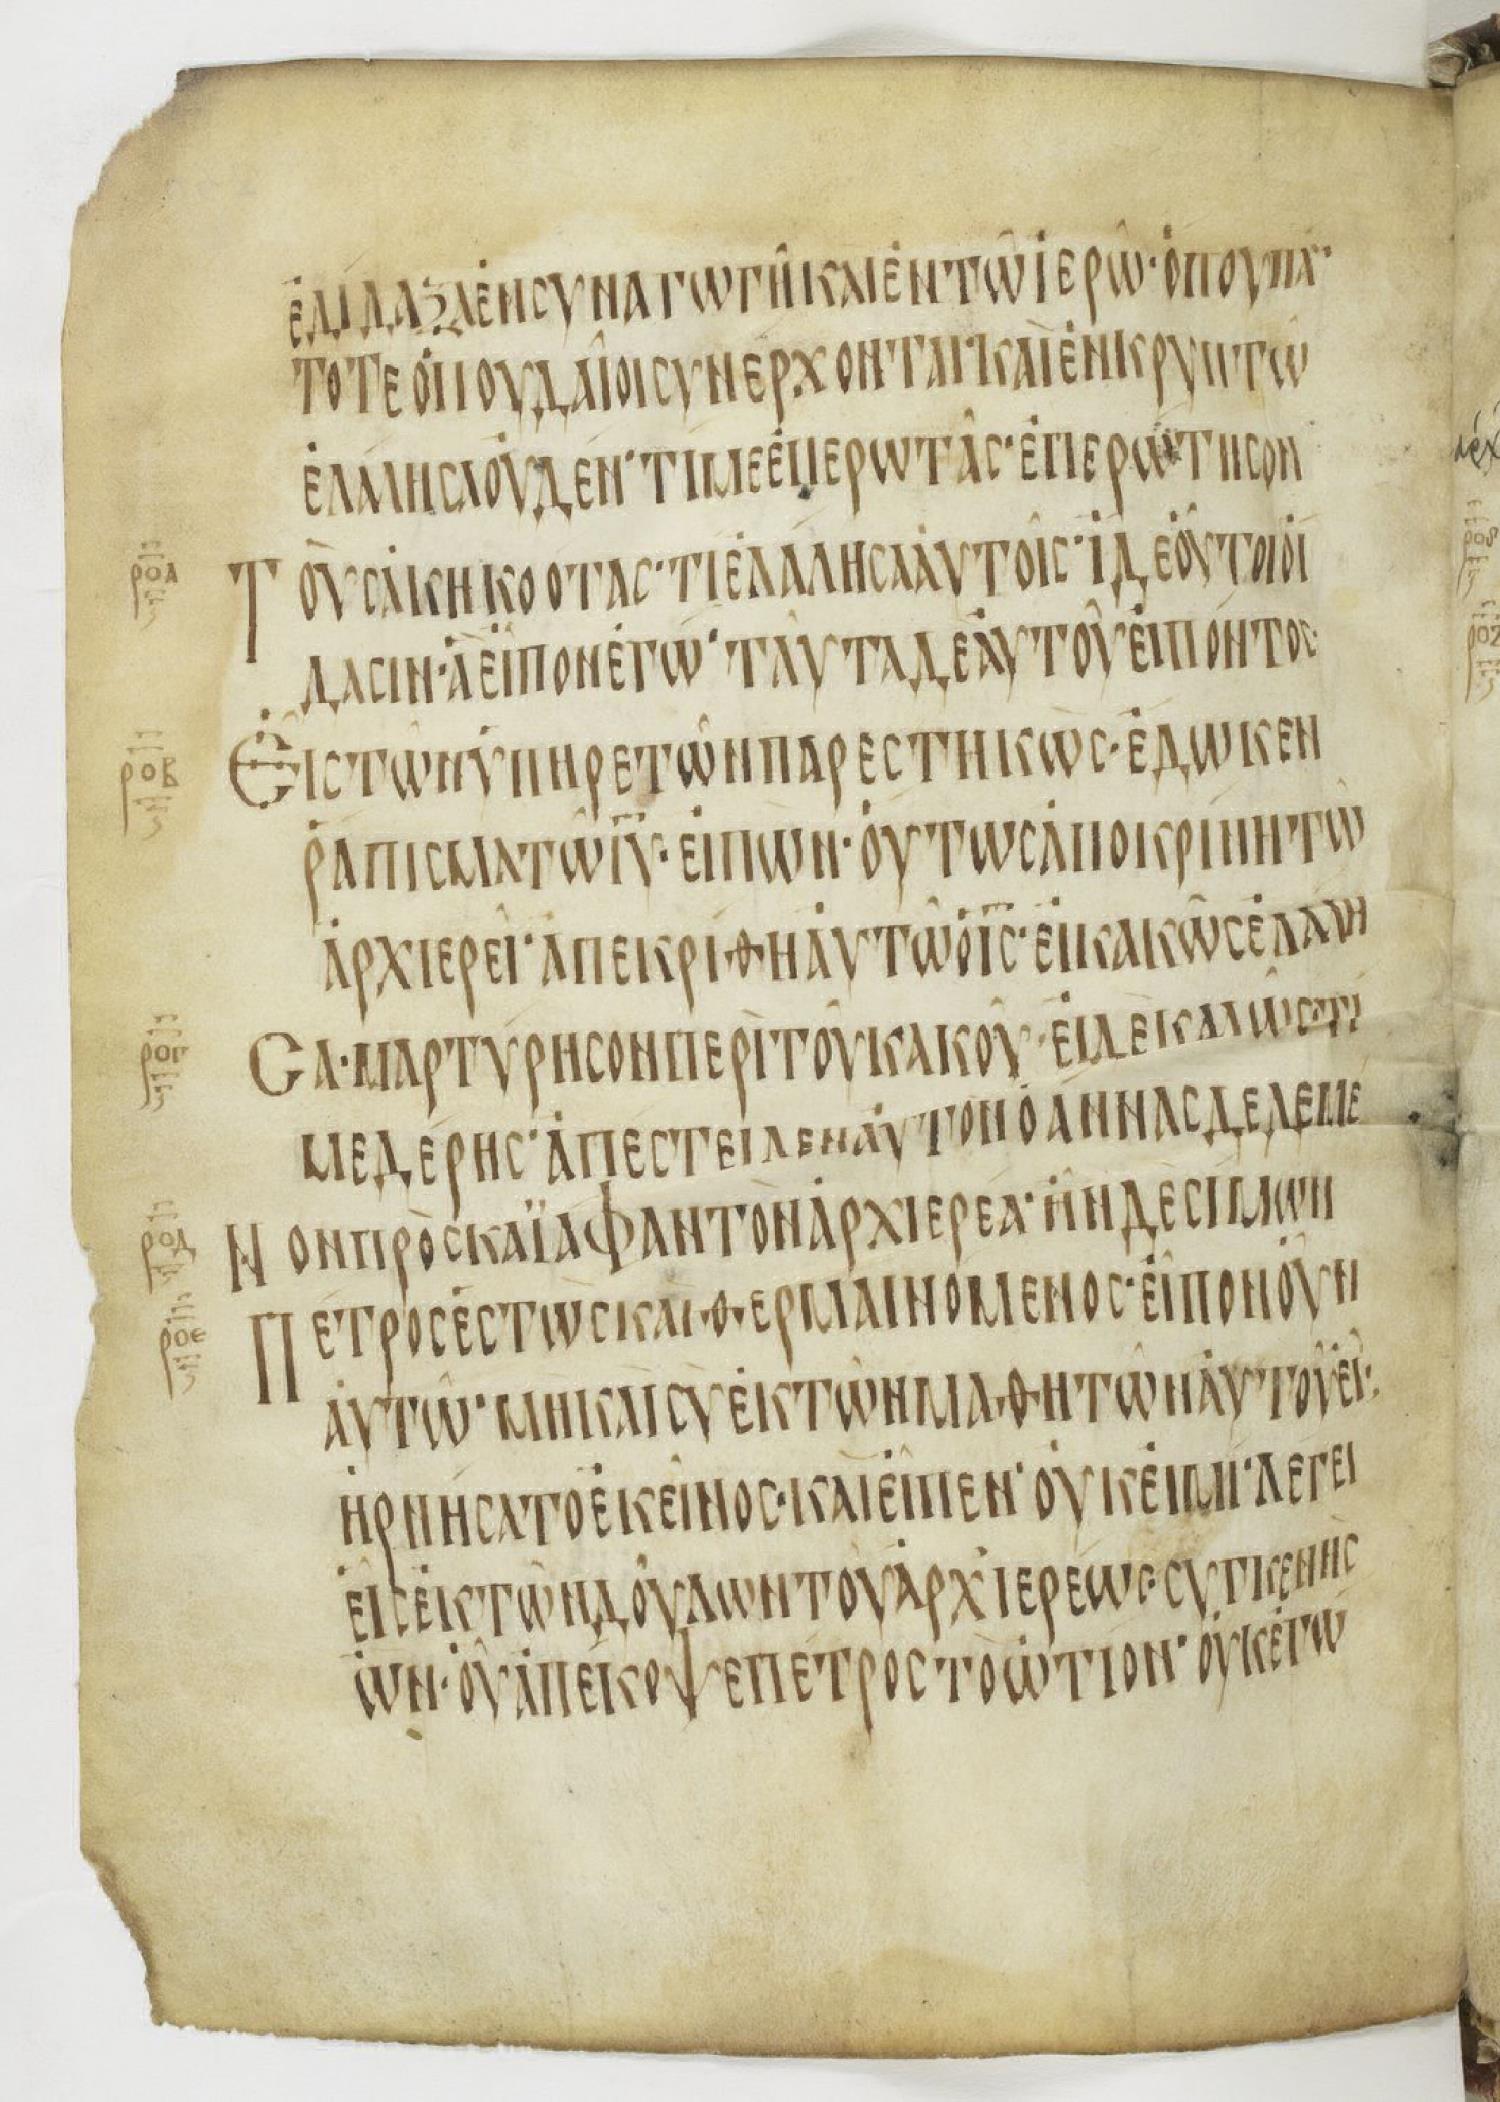 ἐδίδαξα ἐν συναγωγῆ καὶ ἐν τῶ ἱερῶ· ὅπου πά·
τοτε ὁι ἰουδαῖοι συνέρχονται· καὶ ἐν κρυπτῶ
ἐλάλησα οὐδέν· τί με ἐπερωτᾶς· ἐπερώτησον
ροα Τοὺς ἀκηκοότας· τί ἐλάλησα ἀυτοῖς· ἴδε ὁῦτοι ὁί
δασιν· ἃ ἐῖπον ἐγώ· ταῦτα δὲ ἀυτοῦ ἐιπόντος·
ροβ Ἐις τῶν ὑπηρετῶν παρεστηκὼς· ἔδωκεν
ῥάπισμα τῶ ιυ· ἐιπών· ὁύτως ἀποκρίνη τῶ
ἀρχιερεῖ· ἀπεκρίθη ἀυτῶ ὁ ις· ἐι κακῶς ἐλάλη
ρογ Cα· μαρτύρησον περὶ τοῦ κακοῦ· ἐι δὲ καλῶς τί
με δέρης· ἀπέστειλεν ἀυτὸν ὁ ἄννας δεδεμέ
ροδ Νον πρὸς καϊάφαν τὸν ἀρχιερέα· ἦν δὲ σίμων
ροε Πέτρος ἑστὼς καὶ θερμαινόμενος· ἐῖπον ὀῦν
ἀυτῶ· μὴ καὶ σὺ ἐκ τῶν μαθητῶν ἀυτοῦ ἐῖ·
ἠρνήσατο ἐκεῖνος· καὶ ἐῖπεν· ὀυκ ἐιμί· λέγει
ἐῖς ἐκ τῶν δούλων τοῦ ἀρχιερέως· συγκενὴς
ὢν· ὁῦ ἀπέκοψε πέτρος τὸ ὠτίον· ὀυκ ἐγώ